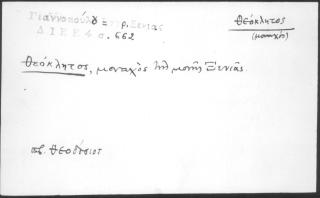 Γιαννοπούλου Ξενίας
Δ Ι Ε Ε 4 σ. 662
Θεόκλητος
(μοναχός)
Θεόκλητος, μοναχὸς τῆς μονῆς Ξενιᾶς.
πβ. Θεοδόσιος